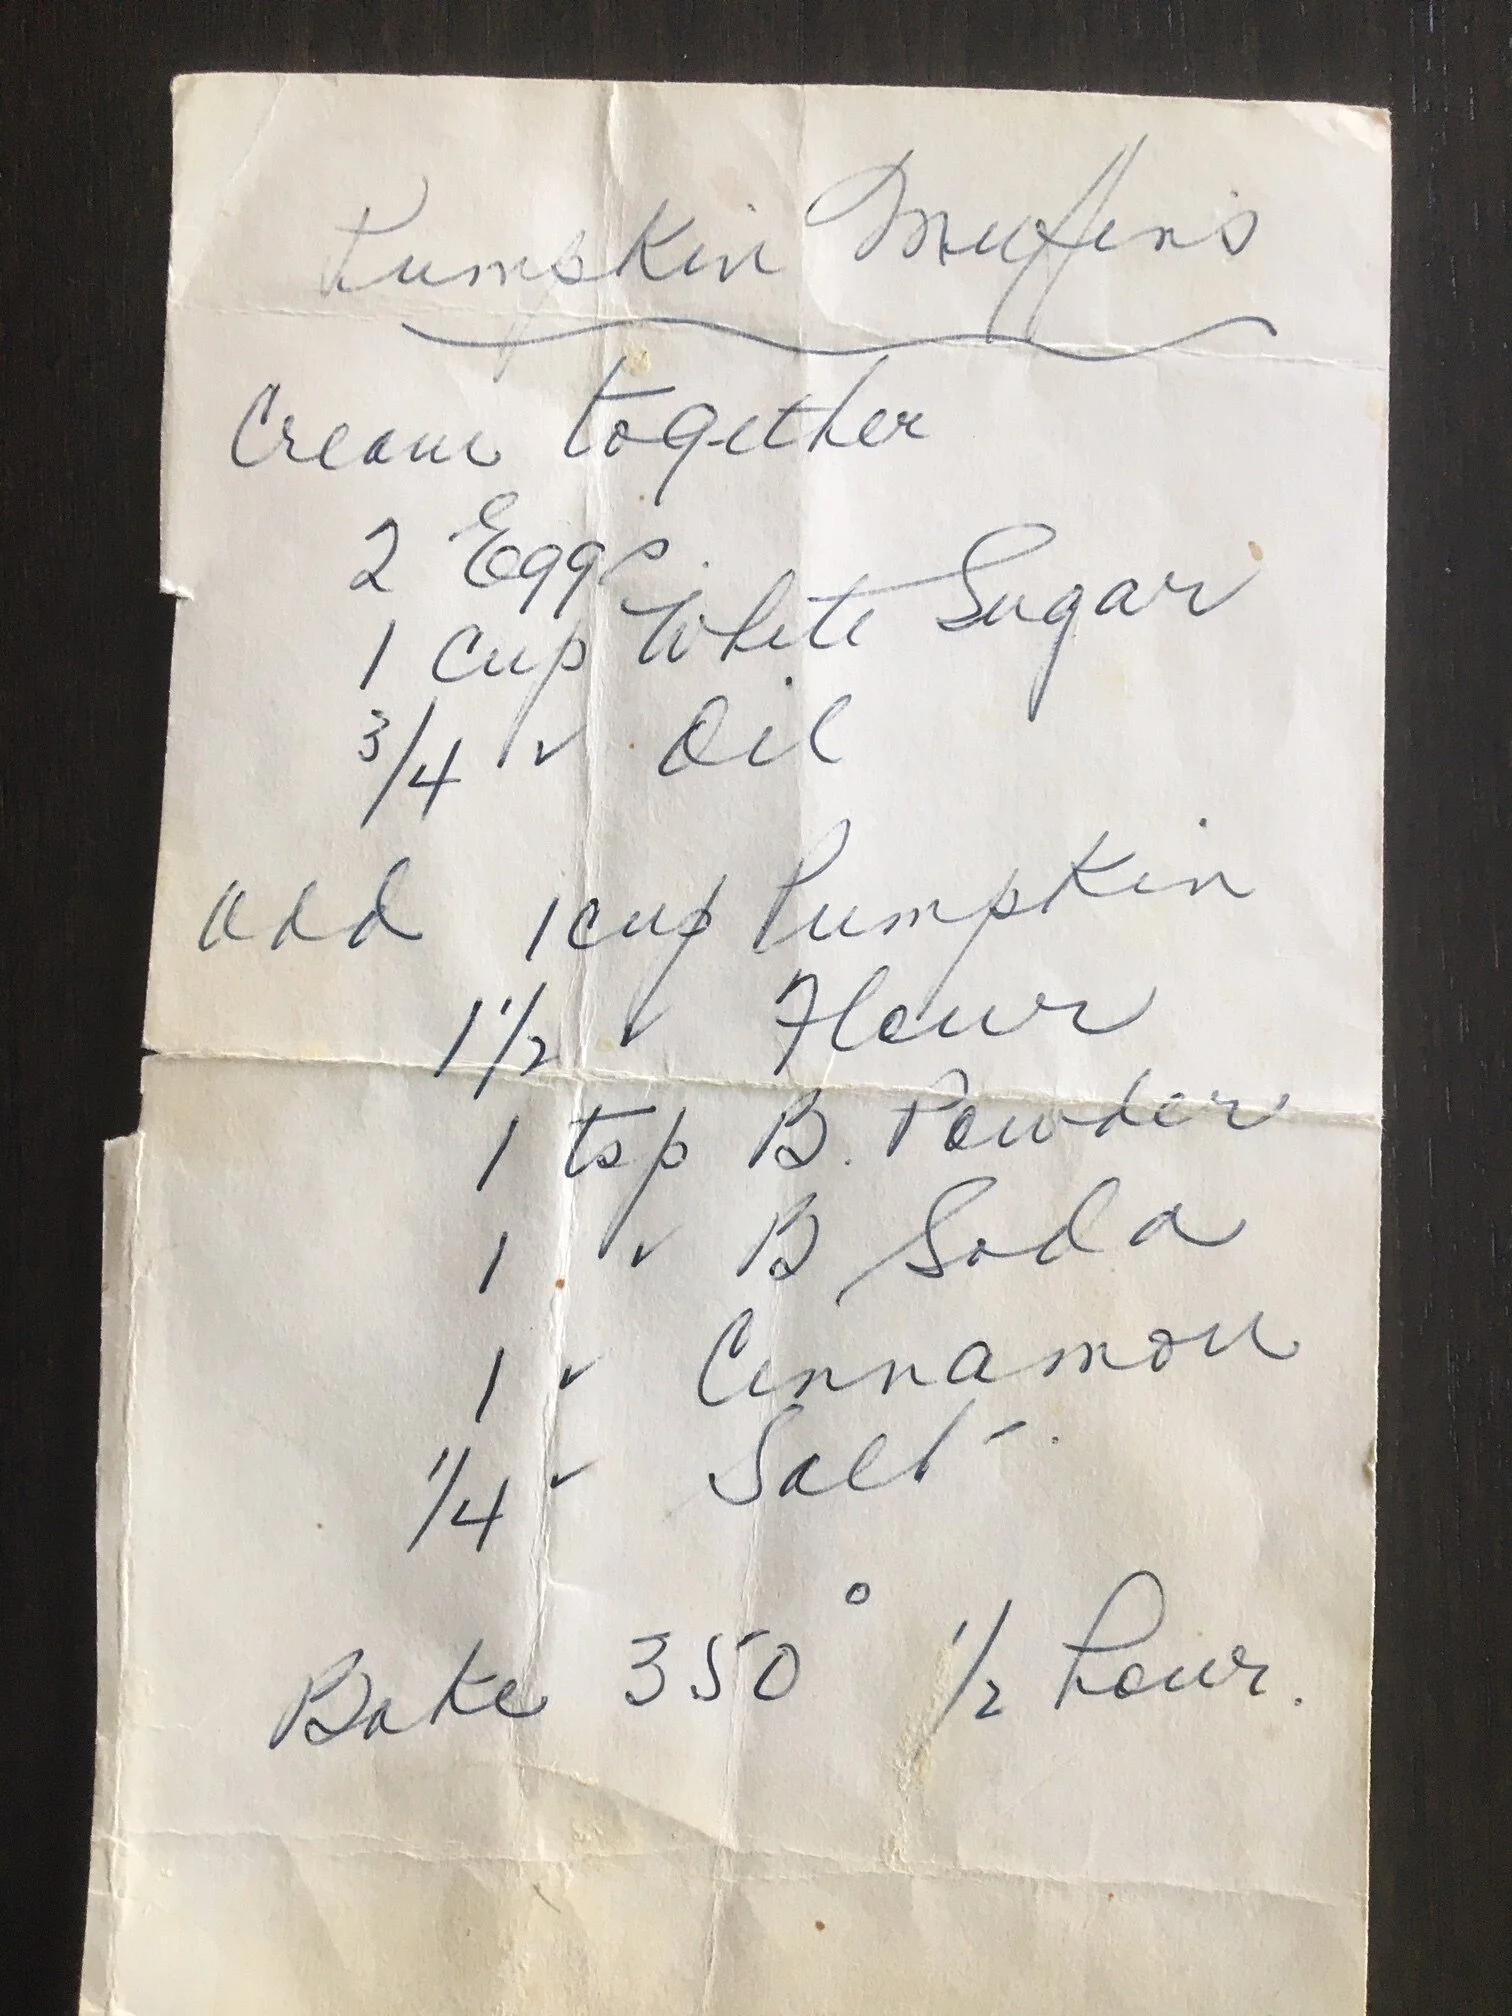 Pumpkin Muffins
Cream together
2 Eggs.
1 cup White Sugar
3/4 " Oil
add 1 cup Pumpkin
1 1/2 " Flour
1 tsp B. Powder
1 " B Soda
1 " Cinnamon
1/4 " Salt.
Bake 350° 1/2 hour.